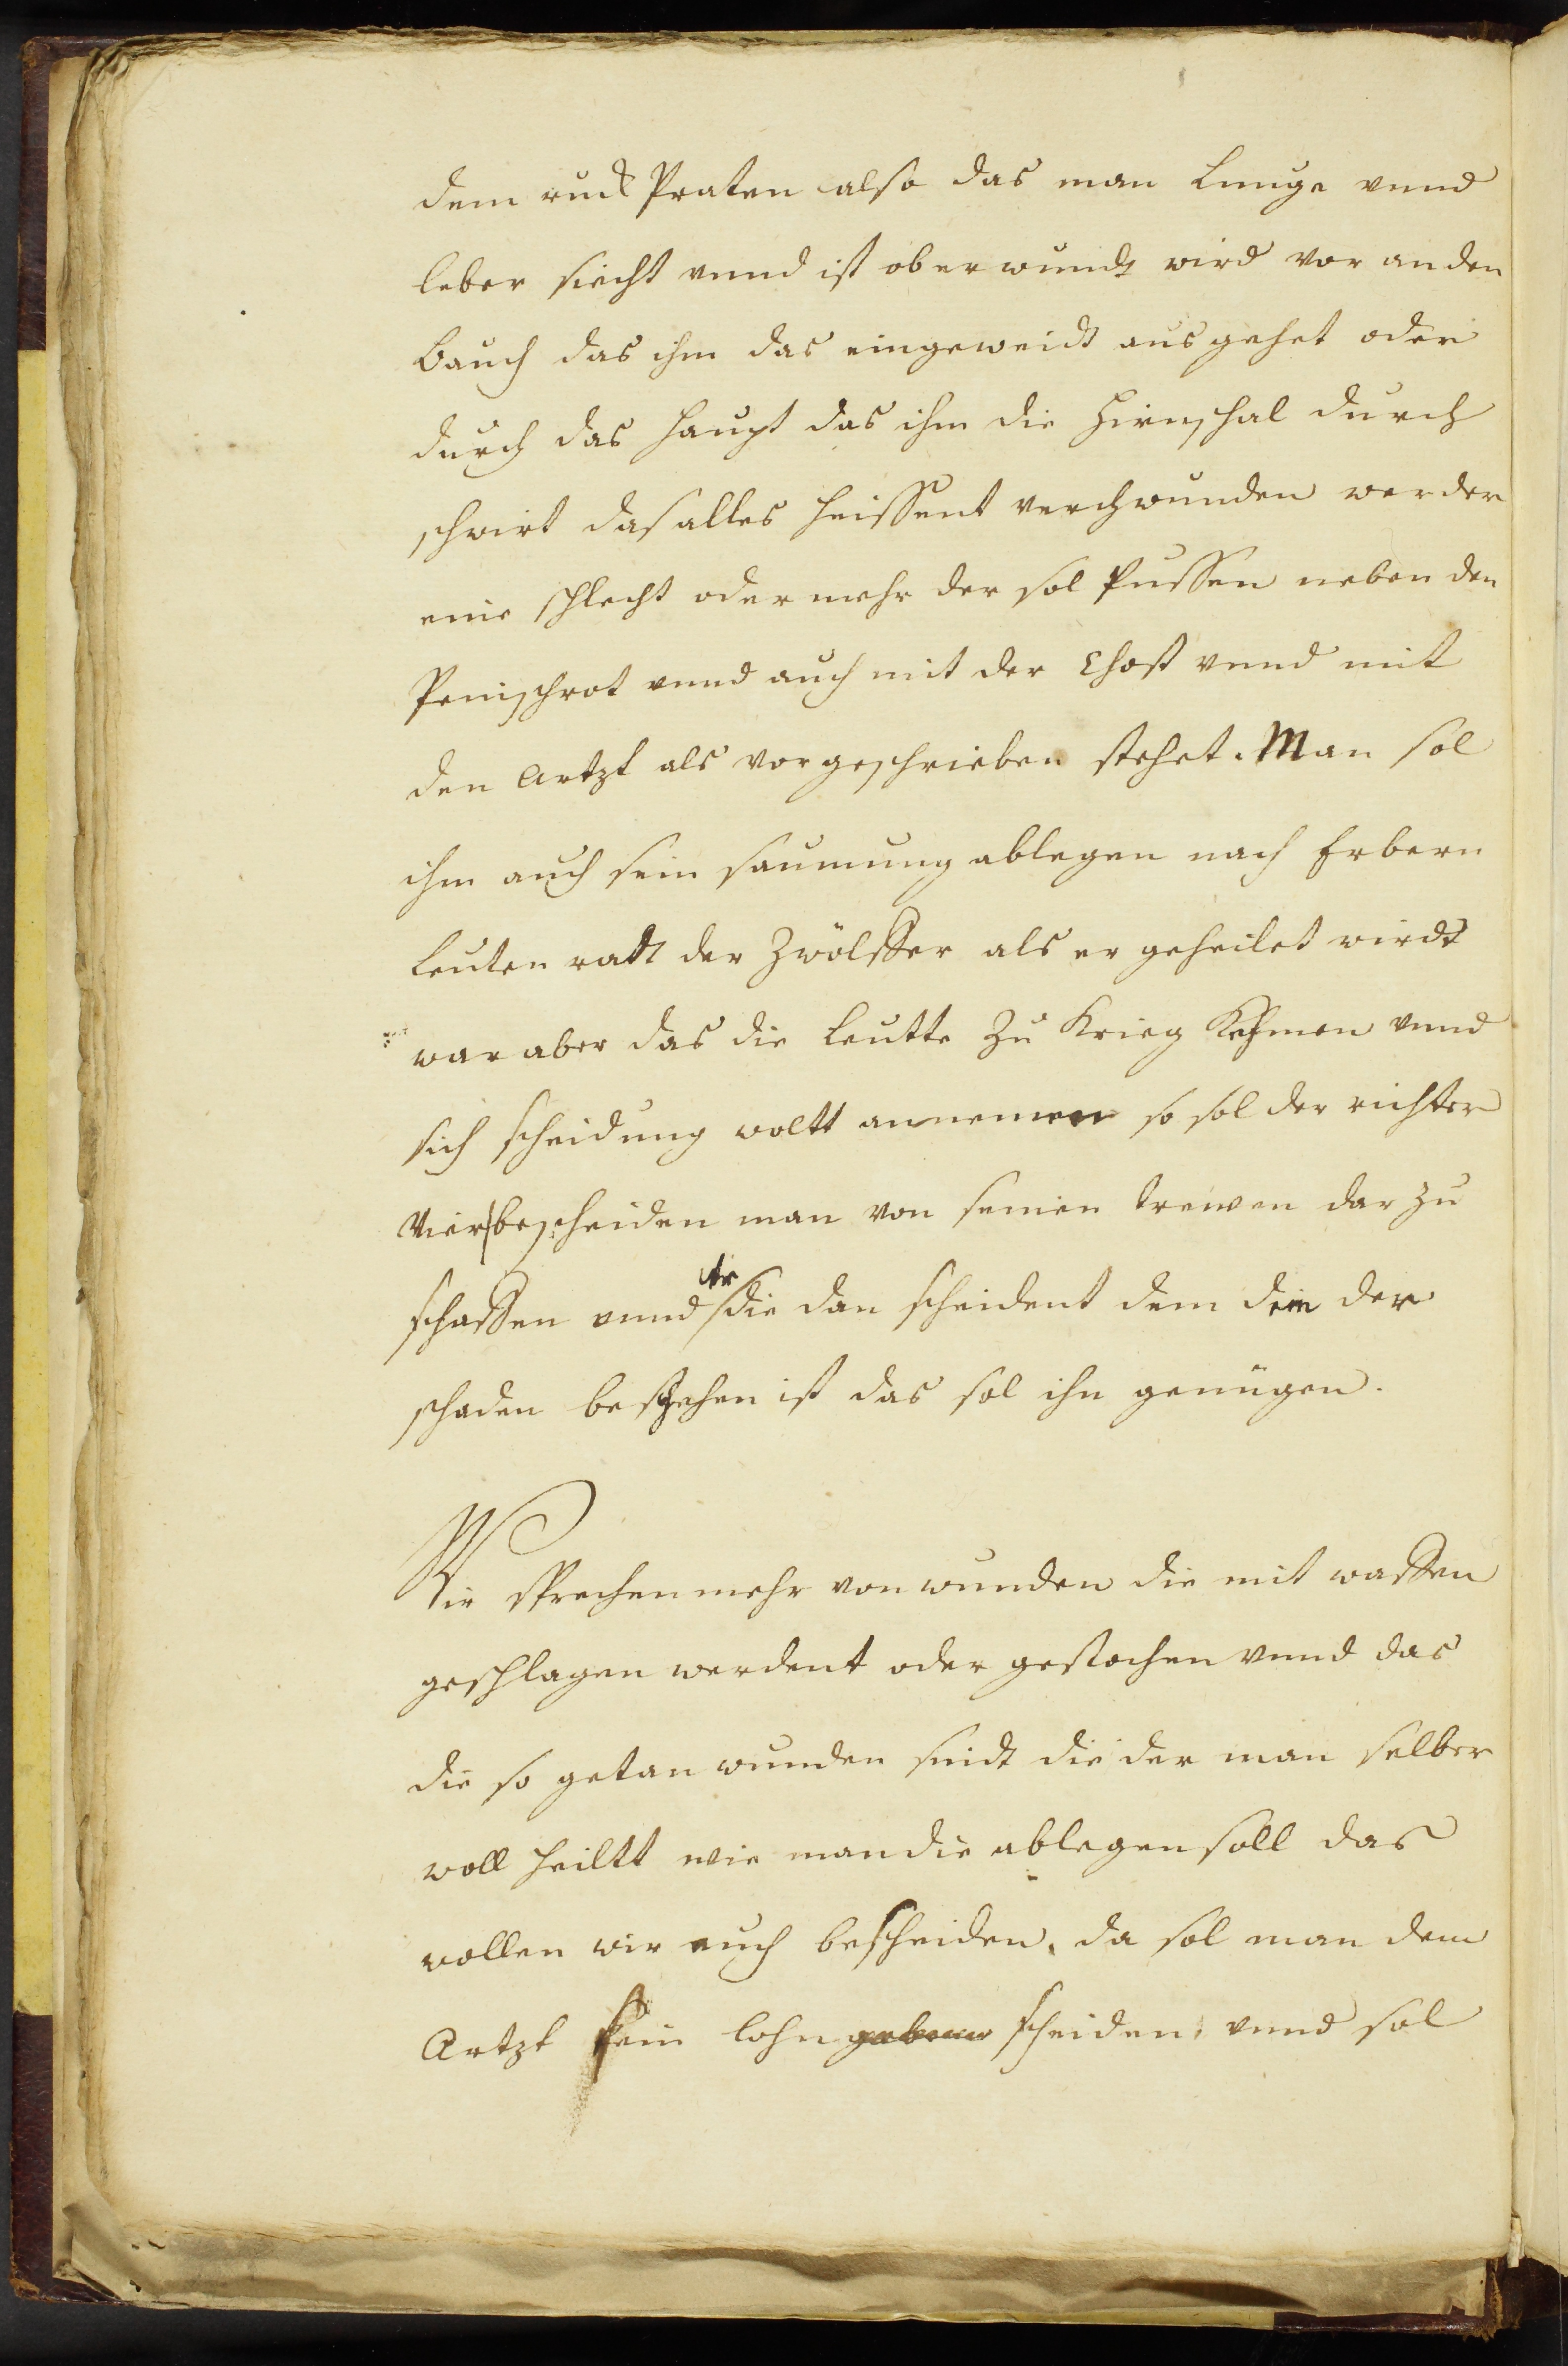 dem ruck Praten also das man Lunge vnnd
leber siecht vnnd ist ob er wundt wird vor an den
bauch das ihm das eingeweidt aus gehet oder
durch das haupt das ihm die Hirnschal durch
schrirt das alles heissent verchwunden wer der
eine schlecht oder mehr der sol Pussen neben den
Penischrot vnnd auch mit der Chost vnnd mit
den Artzt als vorgeschrieben stehet. Man sol
ihm auch sein saumung ablegen nach Erbern
leuten radt der Zwölffer als er geheilet wirdt
war aber das die leutte zu Krieg Kehmen vnnd
sich scheidung woltt annemen so sol der richter
Vier bescheiden man von seinen trewen dar zu
schaffen vnnd die dan scheident dem dem der
schaden beschehen ist das sol ihn genügen.
Wir sprechen mehr von wunden die mit waffen
geschlagen werdent oder gestochen vnnd das
die so getan wunden sindt die der man selber
woll heiltt wie man die ablegen soll das
wollen wir auch bescheiden, da sol man dem
Artzt sein lohn geben scheiden, vnnd sol